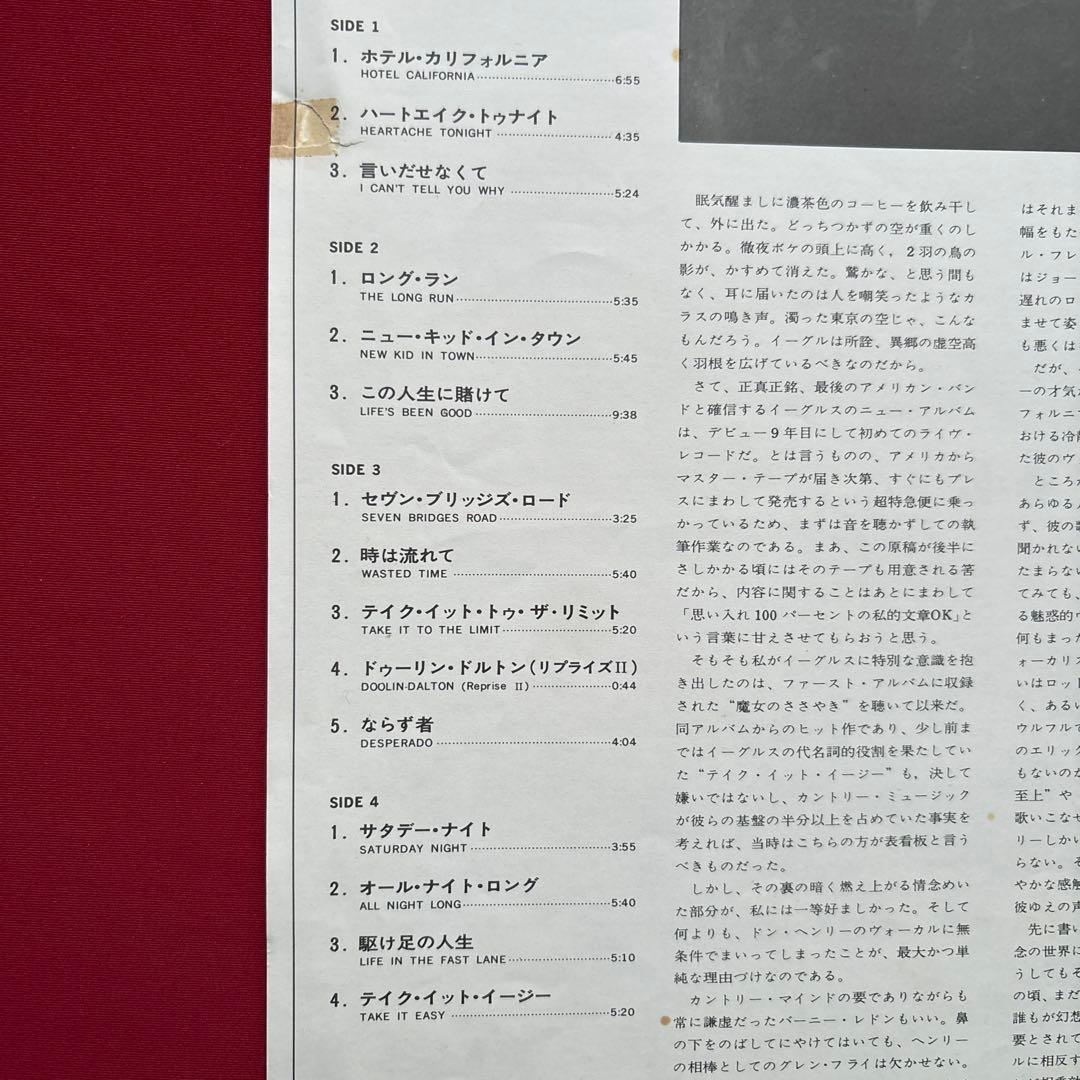 SIDE 1
1. ホテル・カリフォルニア
HOTEL CALIFORNIA 6:55
2. ハートエイク・トゥナイト
HEARTACHE TONIGHT 4:35
3. 言いだせなくて
I CAN'T TELL YOU WHY 5:24
SIDE 2
1. ロング・ラン
THE LONG RUN 5:35
2. ニュー・キッド・イン・タウン
NEW KID IN TOWN 5:45
3. この人生に賭けて
LIFE'S BEEN GOOD 9:38
SIDE 3
1. セヴン・ブリッジズ・ロード
SEVEN BRIDGES ROAD 3:25
2. 時は流れて
WASTED TIME 5:40
3. テイク・イット・トゥ・ザ・リミット
TAKE IT TO THE LIMIT 5:20
4. ドゥーリン・ドルトン(リプライズII)
DOOLIN-DALTON (Reprise II) 0:44
5. ならず者
DESPERADO 4:04
SIDE 4
1. サタデー・ナイト
SATURDAY NIGHT 3:55
2. オール・ナイト・ロング
ALL NIGHT LONG 5:40
3. 駆け足の人生
LIFE IN THE FAST LANE 5:10
4. テイク・イット・イージー
TAKE IT EASY 5:20
眠気醒ましに濃茶色のコーヒーを飲み干し
て、外に出た。どっちつかずの空が重くのし
かかる。徹夜ボケの頭上に高く，2羽の鳥の
影が、かすめて消えた。鷲かな、と思う間も
なく、耳に届いたのは人を嘲笑ったようなカ
ラスの鳴き声。濁った東京の空じゃ、こんな
もんだろう。イーグルは所詮、異郷の虚空高
く羽根を広げているべきなのだから。
さて、正真正銘、最後のアメリカン・バン
ドと確信するイーグルスのニュー・アルバム
は、デビュー9年目にして初めてのライヴ・
レコードだ。とは言うものの、アメリカから
マスター・テープが届き次第、すぐにもプレ
スにまわして発売するという超特急便に乗っ
かっているため、まずは音を聴かずしての執
筆作業なのである。まあ、この原稿が後半に
さしかかる頃にはそのテープも用意される筈
だから、内容に関することはあとにまわして
「思い入れ100パーセントの私的文章OK」と
いう言葉に甘えさせてもらおうと思う。
そもそも私がイーグルスに特別な意識を抱
き出したのは、ファースト・アルバムに収録
された“魔女のささやき”を聴いて以来だ。
同アルバムからのヒット作であり、少し前ま
ではイーグルスの代名詞的役割を果たしてい
た“テイク・イット・イージー”も、決して
嫌いではないし、カントリー・ミュージック
が彼らの基盤の半分以上を占めていた事実を
考えれば、当時はこちらの方が表看板と言う
べきものだった。
しかし、その裏の暗く燃え上がる情念めい
た部分が、私には一等好ましかった。そして
何よりも、ドン・ヘンリーのヴォーカルに無
条件でまいってしまったことが、最大かつ単
純な理由づけなのである。
カントリー・マインドの要でありながらも
常に謙虚だったバーニー・レドンもいい。鼻
の下をのばしてにやけてはいても、ヘンリー
の相棒としてのグレン・フライは欠かせない。
はそれま
幅をもた
ル・フレ
はジョー
遅れのロ
ませて姿
も悪くは
だが、
ーの才気
フォルニ
おける冷
た彼のヴ
ところ
あらゆる
ず、彼の
聞かれな
たまらな
てみても、
る魅惑的
何もまっ
ォーカリス
いはロッ
く、ある
ウルフルで
のエリッ
もないの
至上”や
歌いこなせ
リーしか
らない。そ
やかな感触
彼ゆえの声
先に書い
念の世界に
うしてもそ
の頃、まだ
誰もが幻想
要とされて
ルに相反す